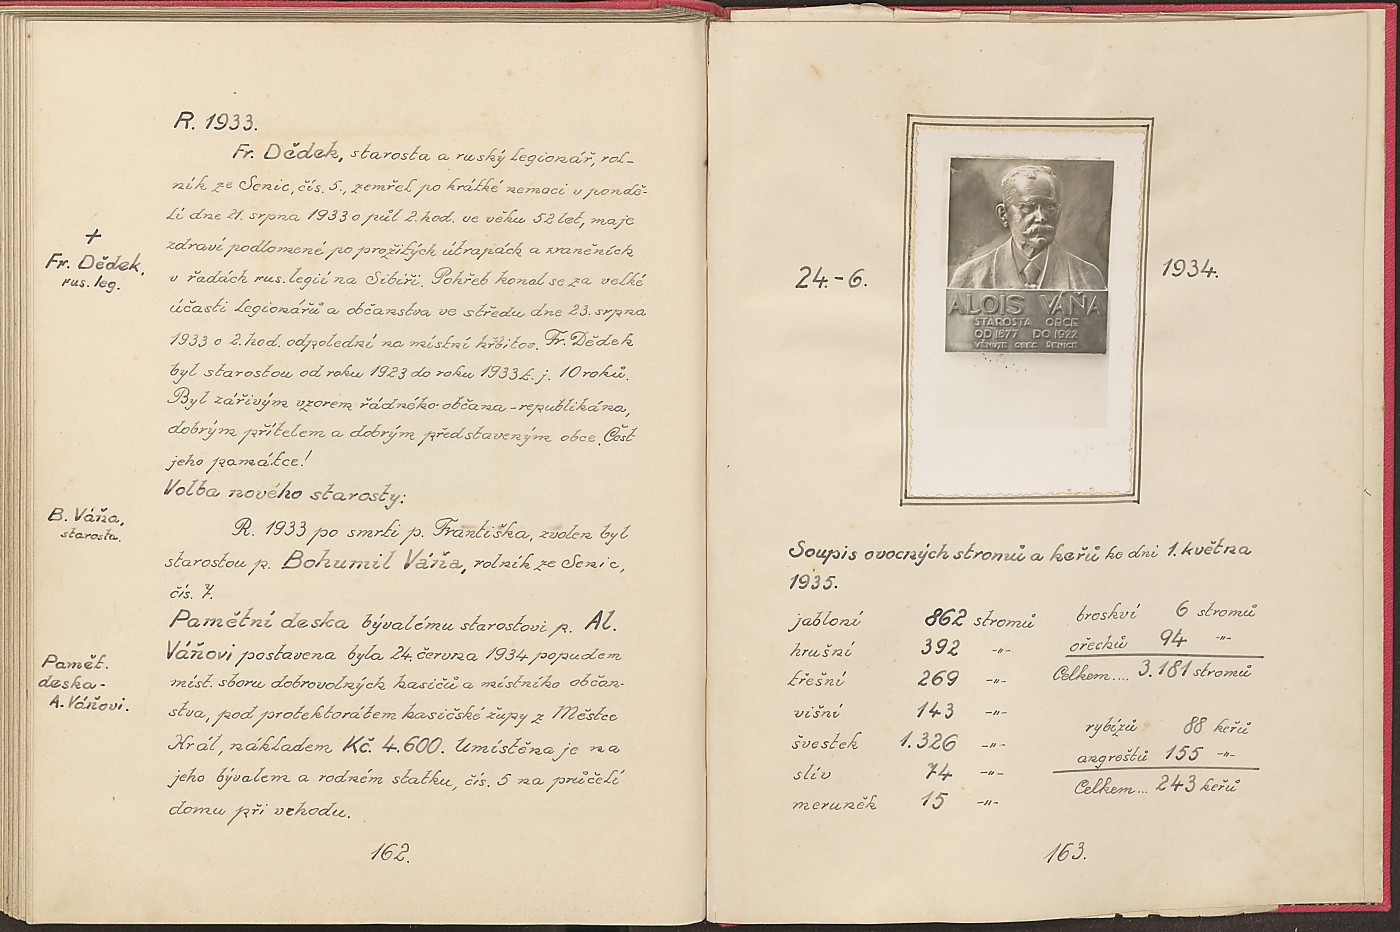 R. 1933.
Fr. Dědek, starosta a ruský legionář, rol-
ník ze Senic, čís. 5., zemřel po krátké nemoci v pondě-
lí dne 21. srpna 1933 o půl 2. hod. ve věku 52 let, maje
zdraví podlomené po prožitých útrapách a zraněních
v řadách rus. legií na Sibiři. Pohřeb konal se za velké
účasti legionářů a občanstva ve středu dne 23. srpna
1933 o 2. hod. odpolední na místní hřbitov. Fr. Dědek
byl starostou od roku 1923 do roku 1933 t. j. 10 roků.
Byl zářivým vzorem řádného občana - republikána,
dobrým přítelem a dobrým představeným obce. Čest
jeho památce!
+
Fr. Dědek,
rus. leg.
Volba nového starosty:
R. 1933 po smrti p. Františka, zvolen byl
starostou p. Bohumil Váňa, rolník ze Senic,
čís. 7.
B. Váňa,
starosta.
Pamětní deska bývalému starostovi p. Al.
Váňovi postavena byla 24. června 1934 popudem
míst. sboru dobrovolných hasičů a místního občan-
stva, pod protektorátem hasičské župy z Městce
Král, nákladem Kč. 4.600. Umístěna je na
jeho bývalem a rodném statku, čís. 5 na průčelí
domu při vchodu.
Pamět.
deska -
A. Váňovi.
162.
24. - 6.
1934.
ALOIS VÁŇA
STAROSTA OBCE
OD 1877 DO 1922
VĚNUJE OBEC SENICE
Soupis ovocných stromů a keřů ke dni 1. května
1935.
jabloní 862 stromů
hrušní 392 -"-
třešní 269 -"-
višní 143 -"-
švestek 1.326 -"-
slív 74 -"-
meruněk 15 -"-
broskví 6 stromů
ořechů 94 -"-
Celkem.... 3.181 stromů
rybízů 88 keřů
angreštů 155 -"-
Celkem... 243 keřů
163.